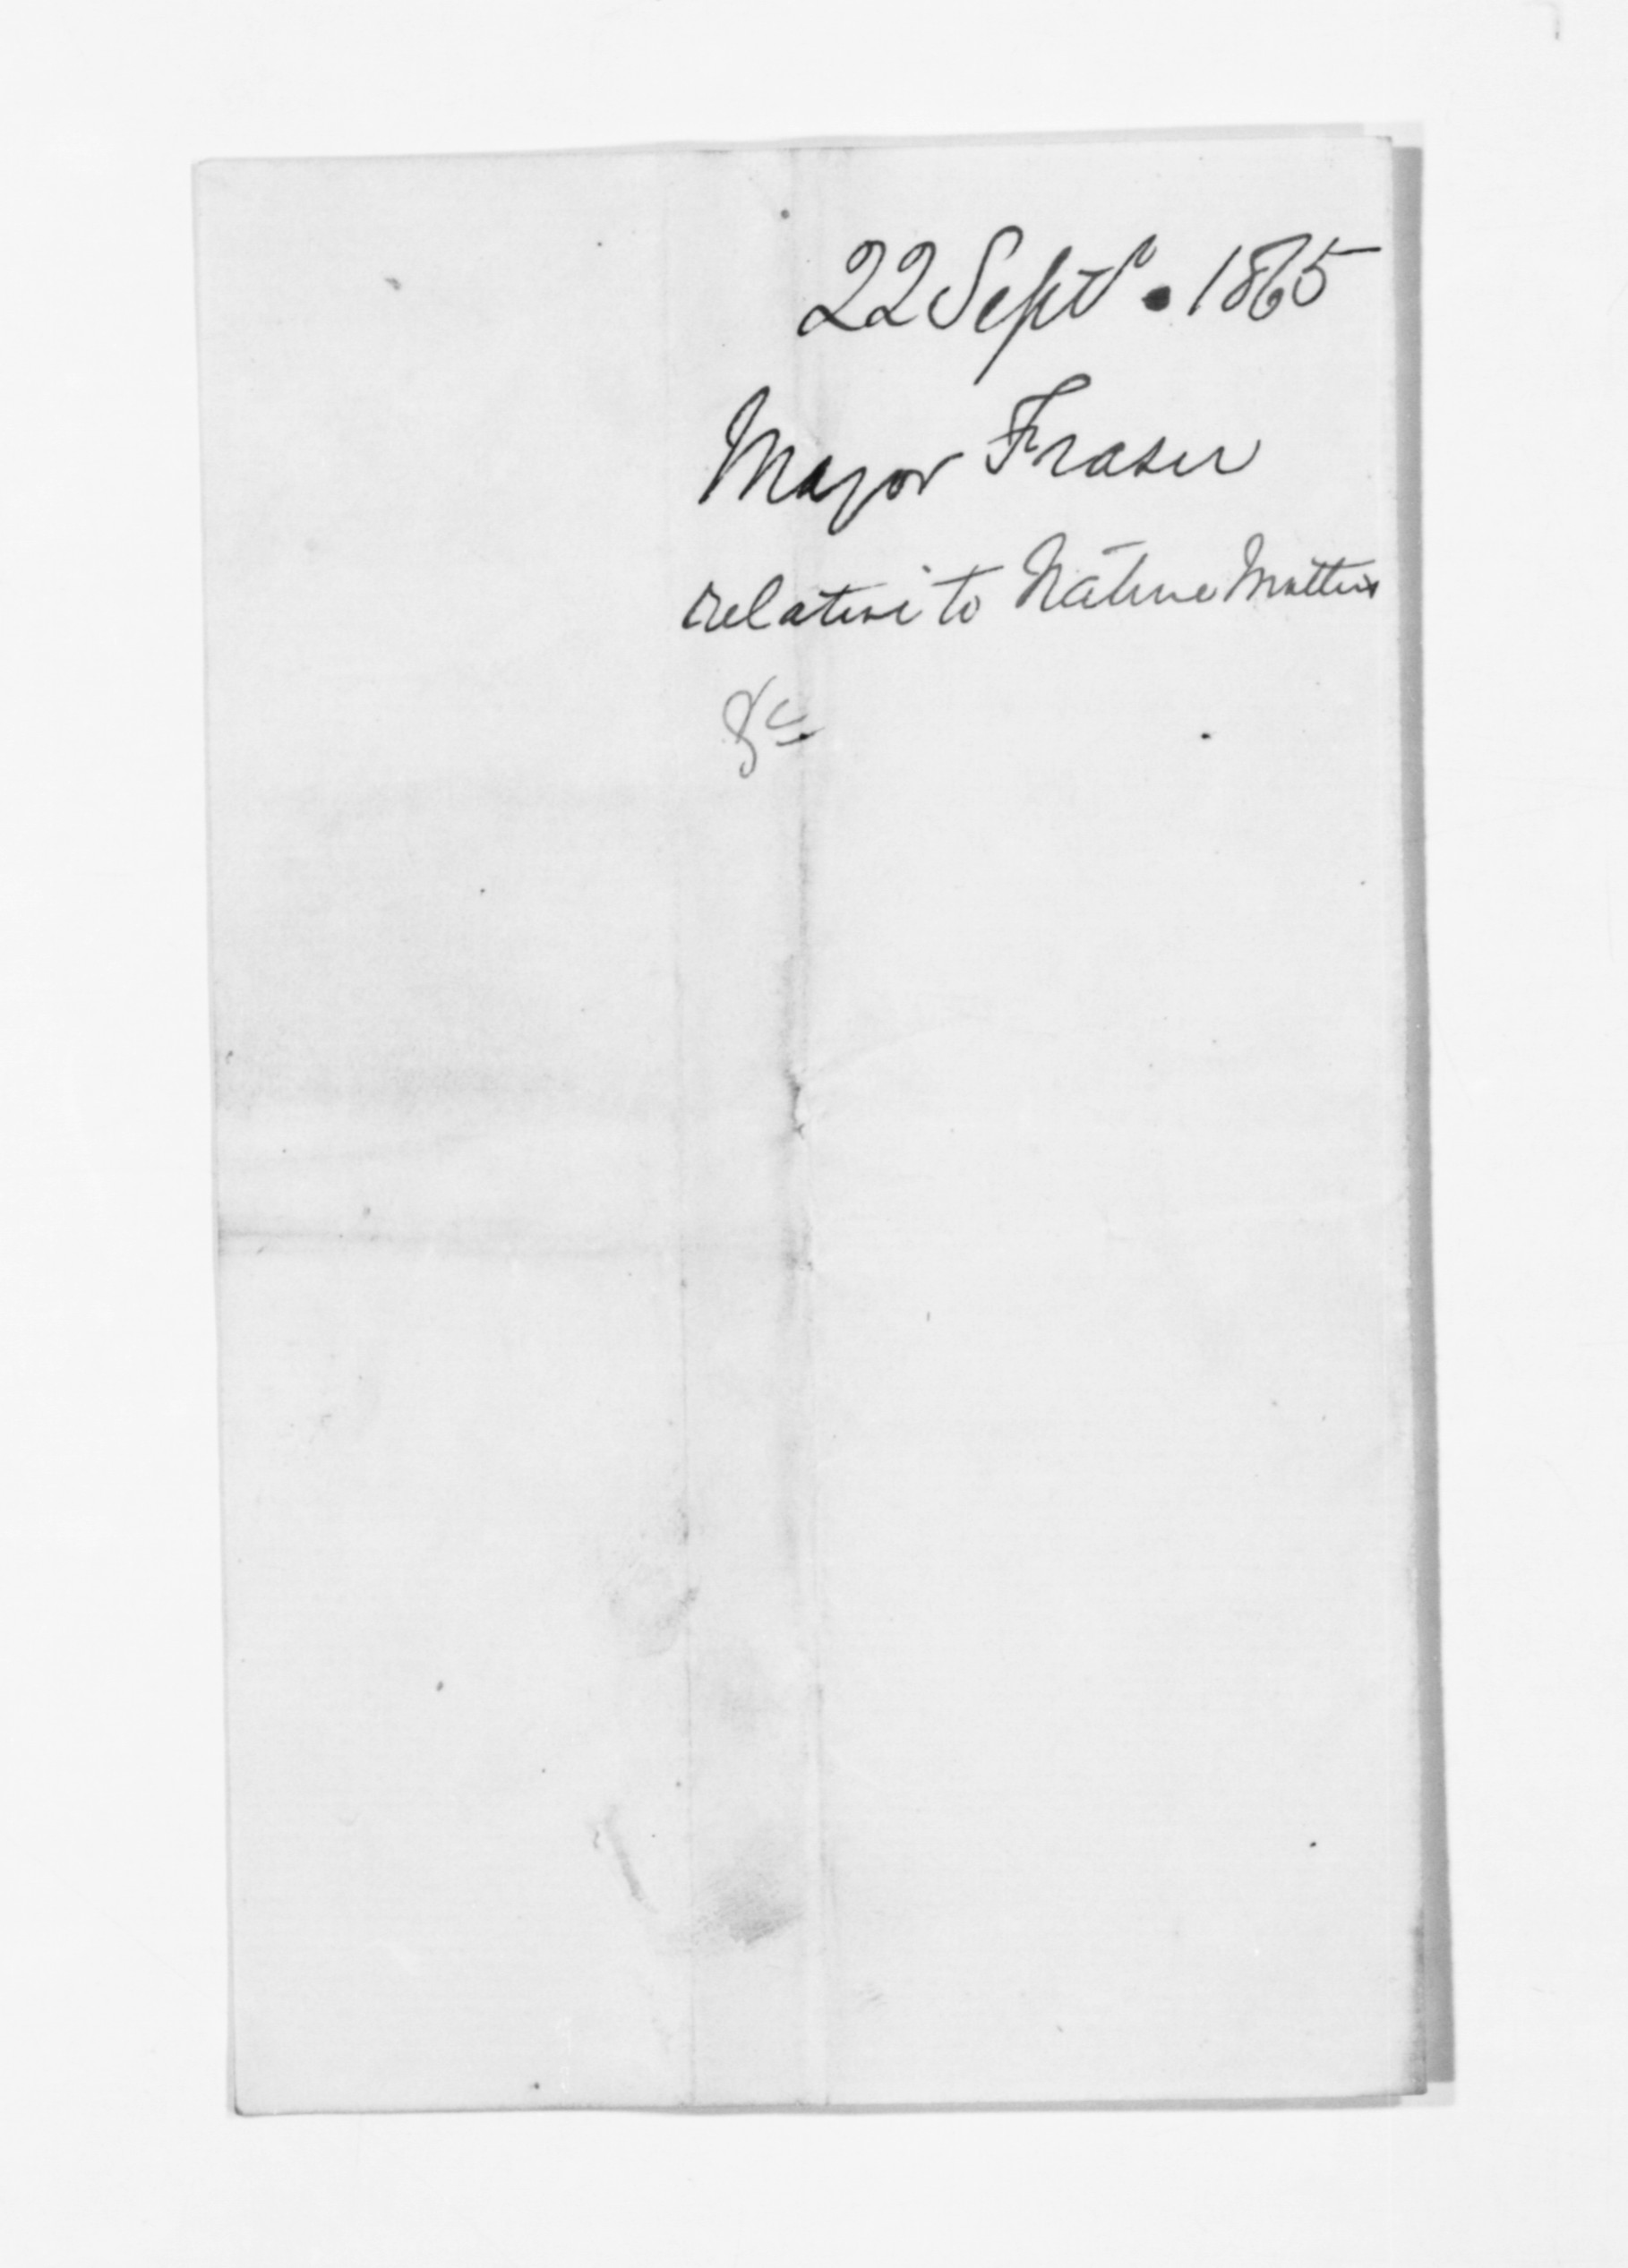 22 Septr. 1865
Major Fraser
relative to Native Matters
&c